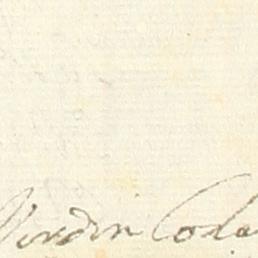 Virdin Cola